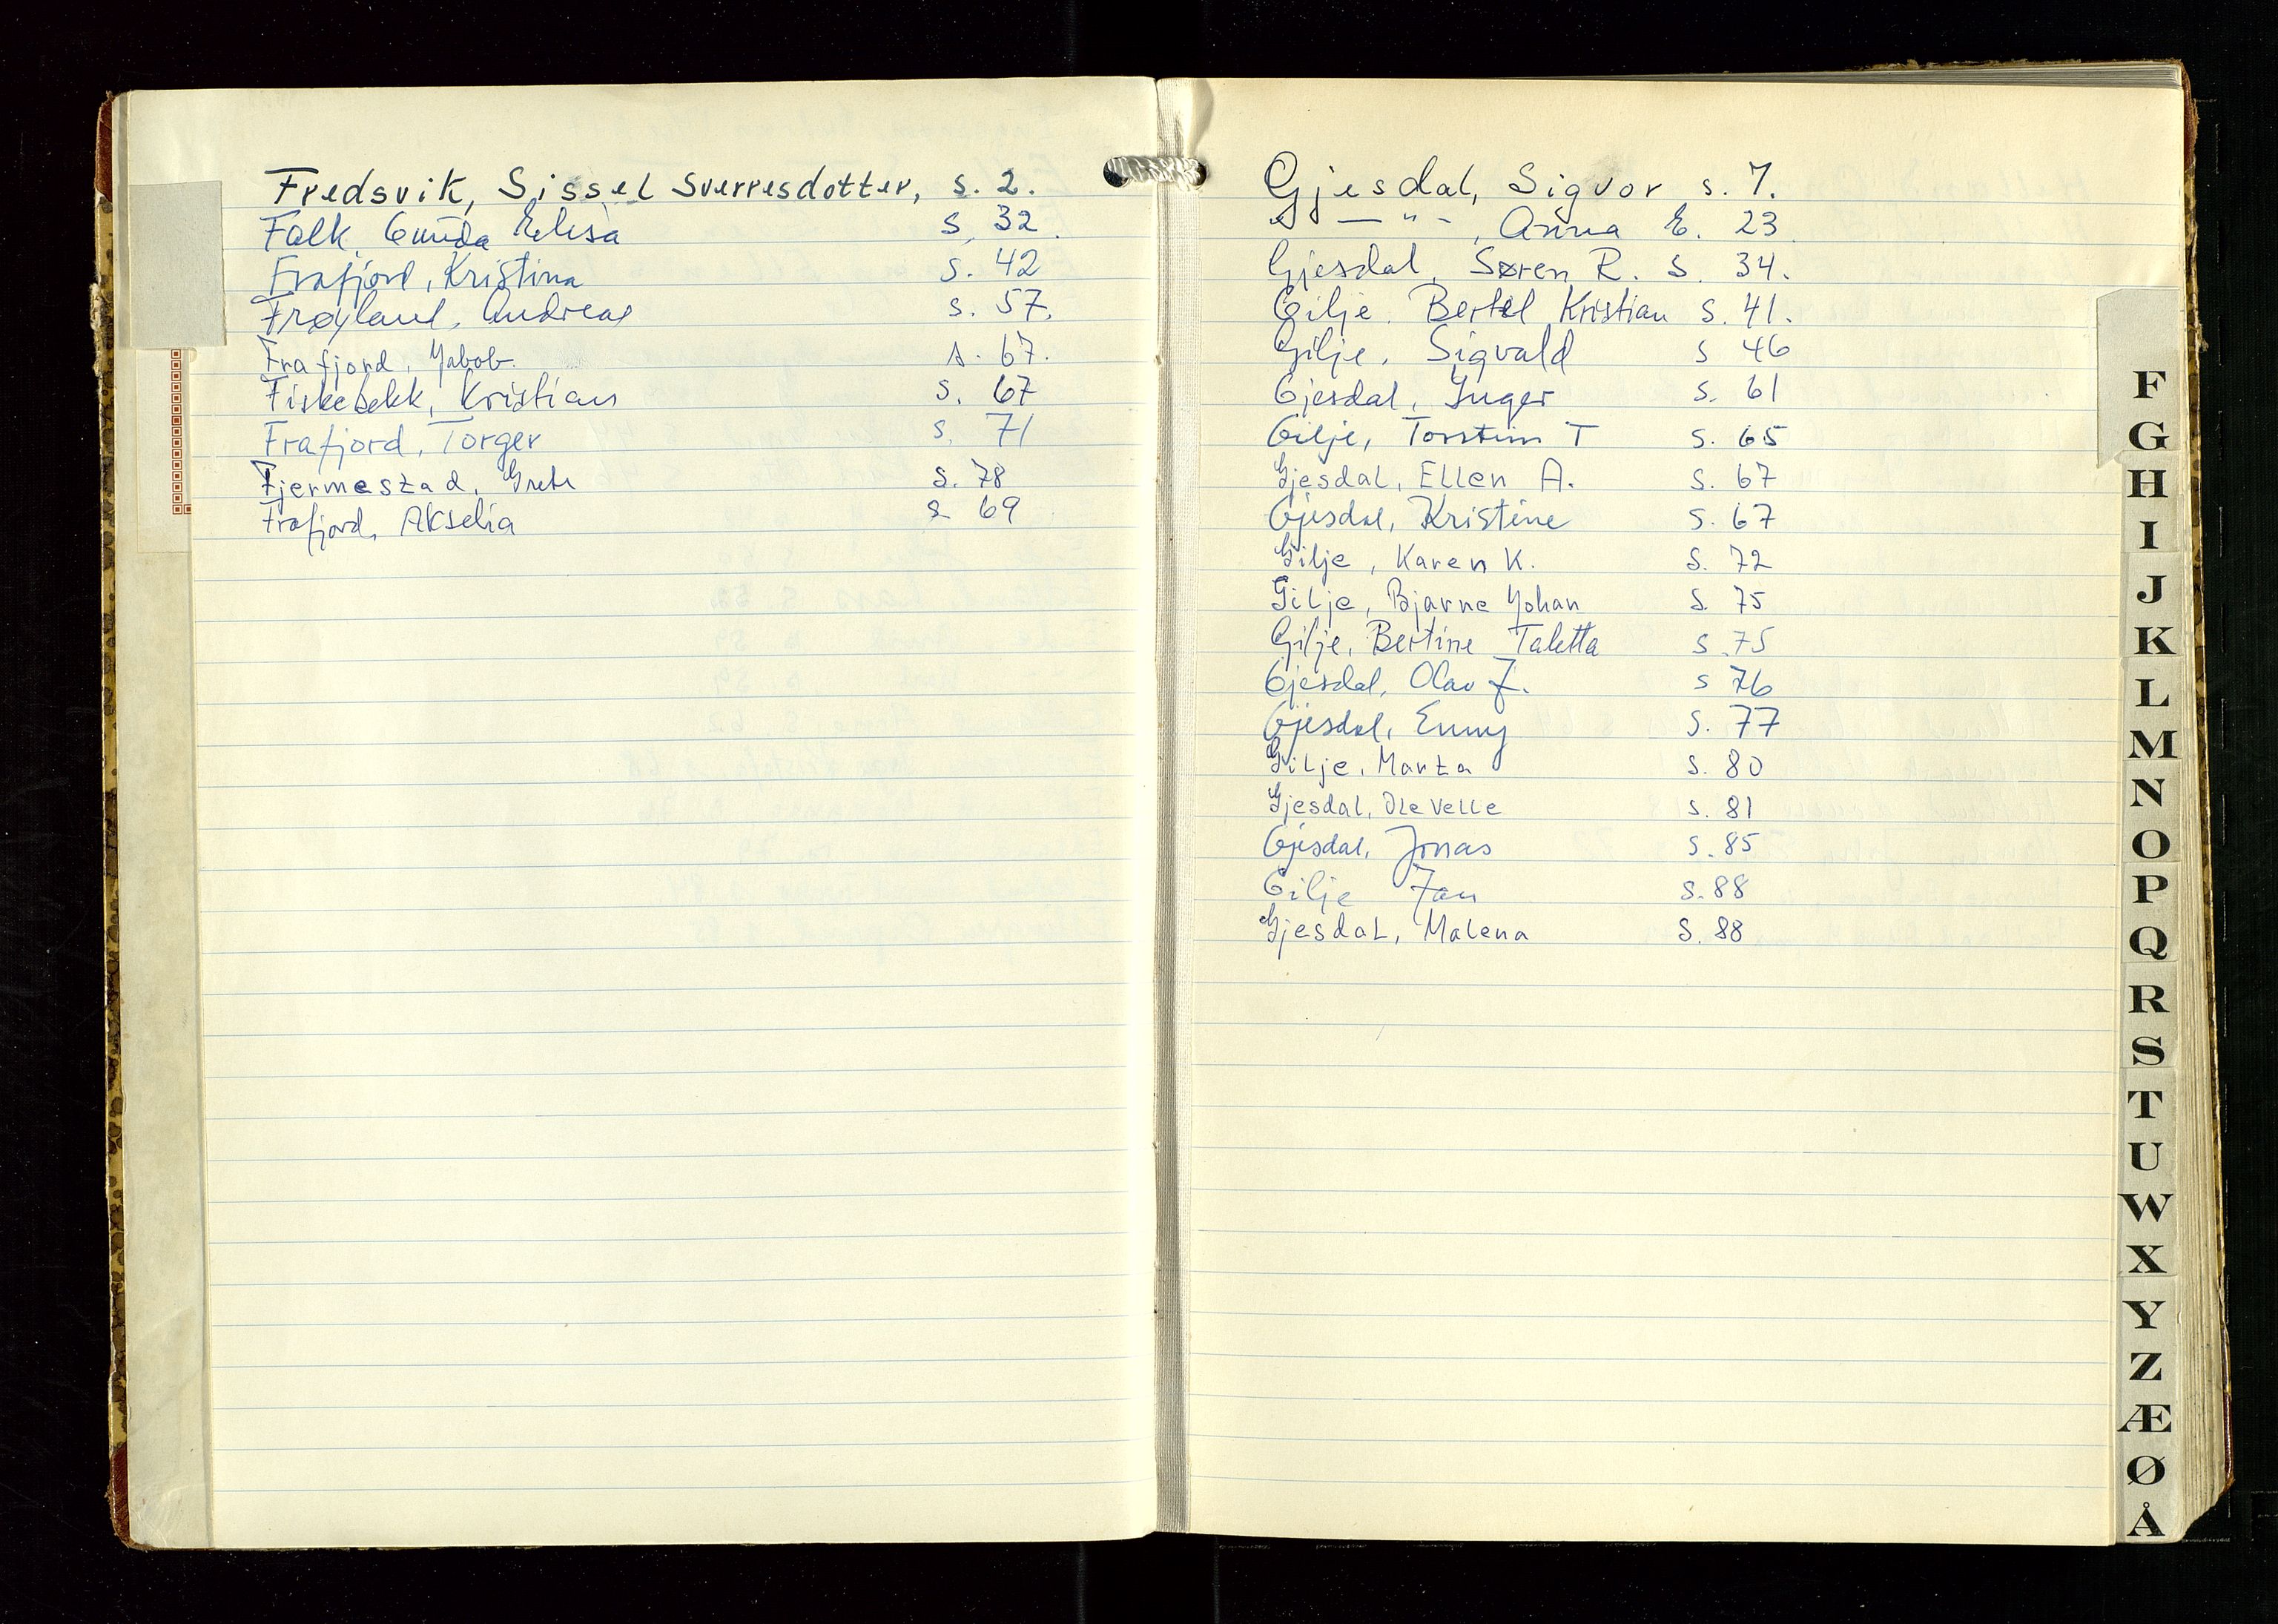 Fredsvik, Sissel Sverresdotter, s. 2.
Falk, Gunda Elisa s. 32.
Frafjord, Kristina s. 42
Frøyland, Andreas s. 57.
Frafjord, Jakob. s. 67.
Fiskebekk, Kristian s. 67
Frafjord, Torger s. 71
Fjermestad, Grete s. 78
Frafjord, Akselia s 69
Gjesdal, Sigvor s. 7.
" — " -, Anna E. 23.
Gjesdal, Søren R. s. 34.
Gilje, Bertel Kristian s. 41.
Gilje, Sigvald s 46
Gjesdal, Inger s. 61
Gilje, Torstein T s. 65
Gjesdal, Ellen A. s. 67
Gjesdal, Kristine s. 67
Gilje, Karen K. s. 72
Gilje, Bjarne Johan s. 75
Gilje, Bertine Taletta s. 75
Gjesdal, Olav J. s 76
Gjesdal, Enny s. 77
Gilje, Marta s. 80
Gjesdal, Ole Velle s. 81
Gjesdal, Jonas s. 85
Gilje Jan s. 88
Gjesdal, Malena s. 88
F
G
H
I
J
K
L
M
N
O
P
Q
R
S
T
U
W
X
Y
Z
Æ
Ø
Å